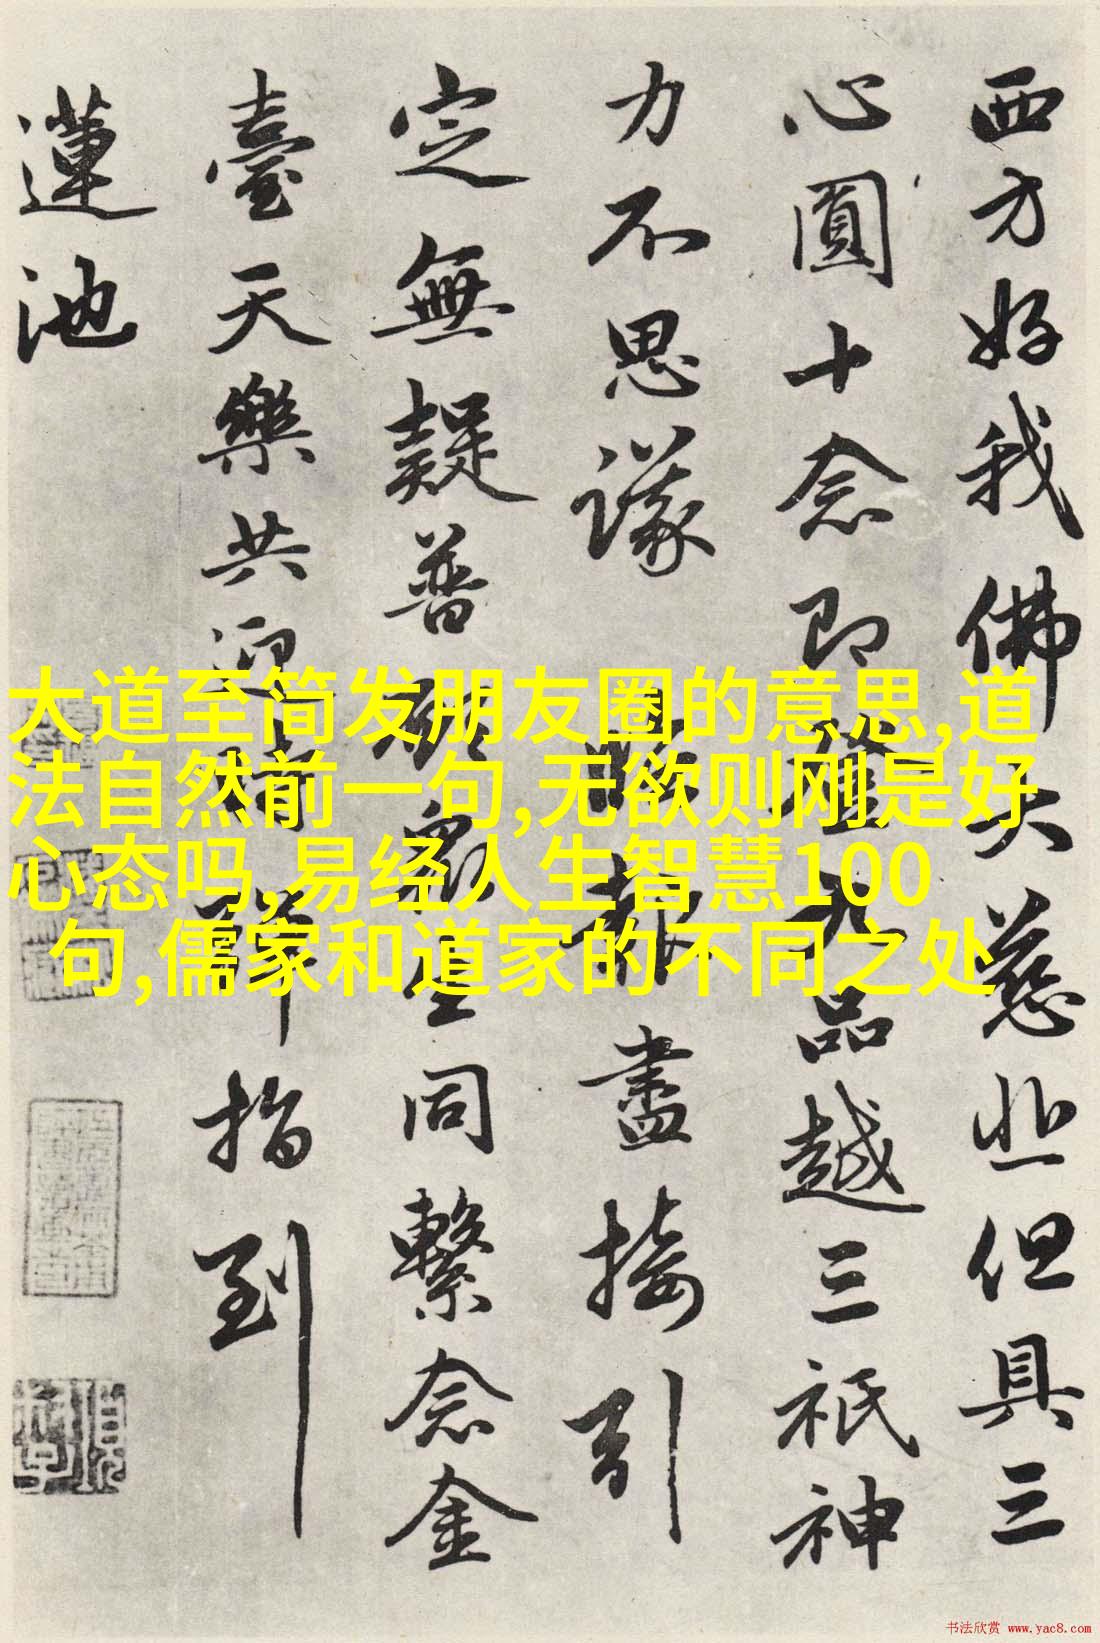 西方好我佛大慈悲但具三
心圓十念即登九品越三祇神
力不思議臨報盡接引
定無疑普願衆生同繫念金
臺天樂共迎時彈指到
蓮池
大道至简发朋友圈的意思,道
法自然前一句,无欲则刚是好
心态吗,易经人生智慧100
句,儒家和道家的不同之处
书法欣赏 www.yac8.com